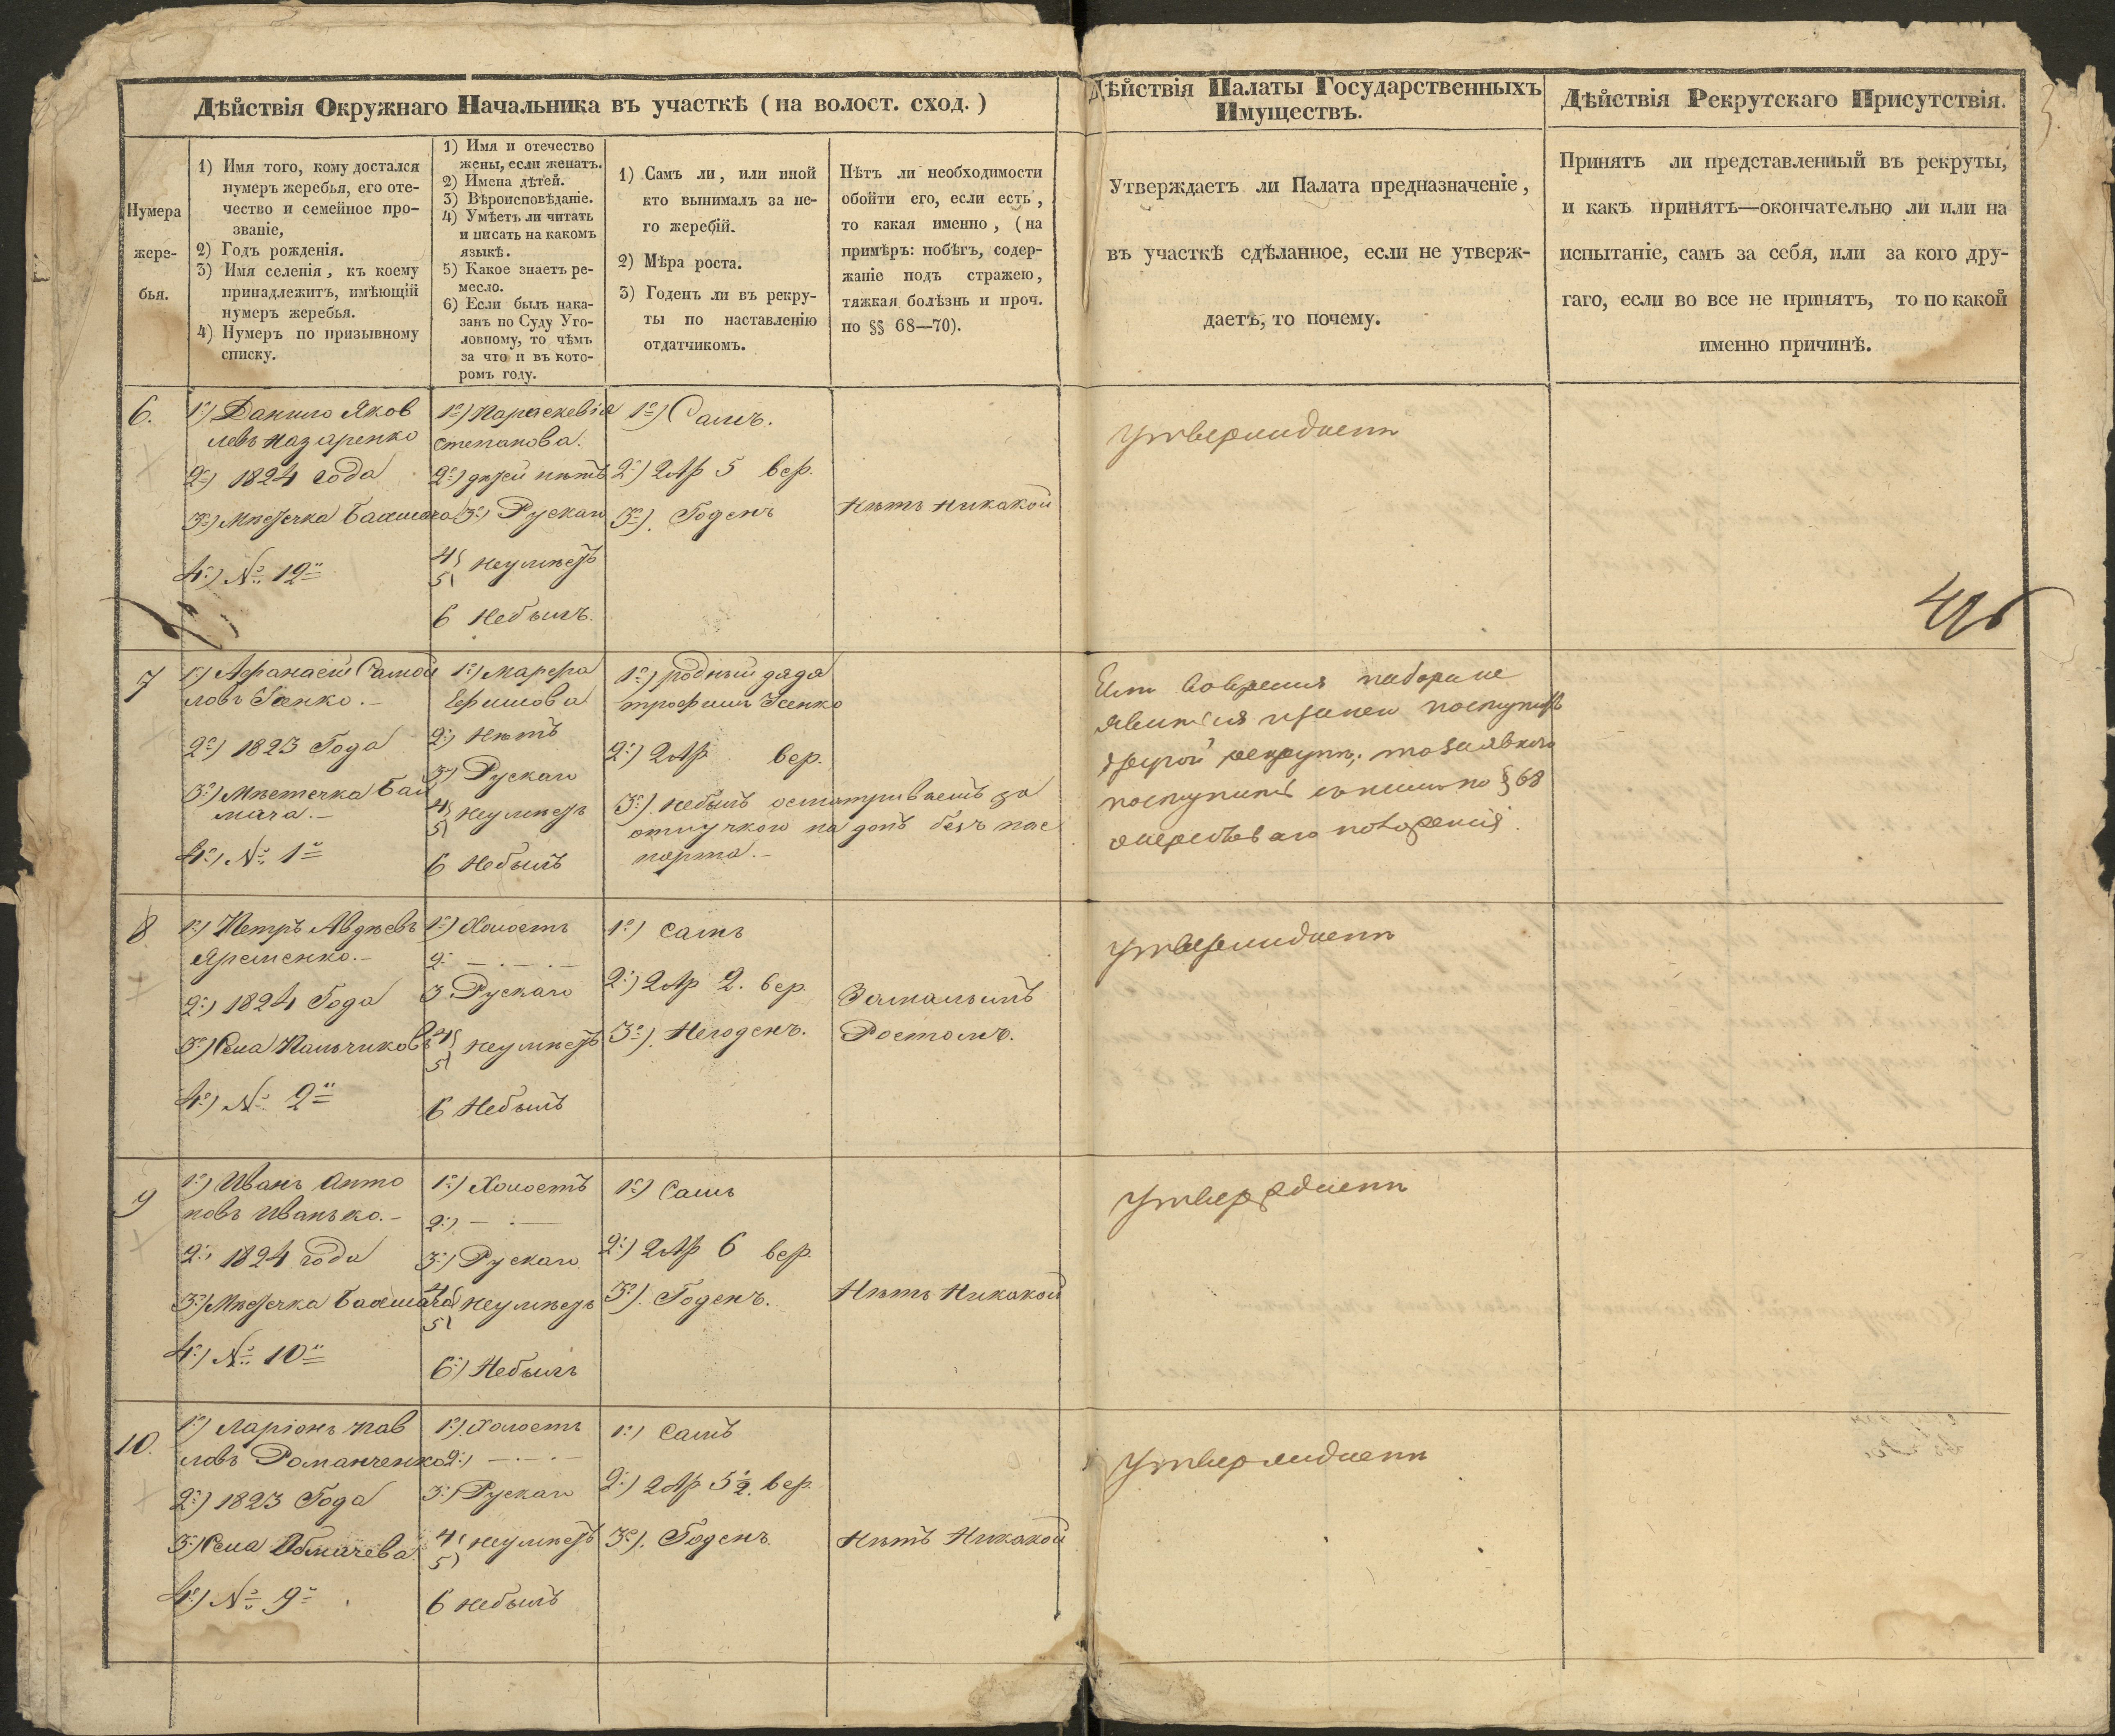 Дѣйствія Окружнаго Начальника въ участкѣ ( на волост. сход. )
Дѣйствія Палаты Государственныхъ
Имуществъ.
Дѣйствія Рекрутскаго Присутствія.
Нумера
жере-
бья.
1) Имя того, кому достался
нумеръ жеребья, его оте-
чество и семейное про-
званіе,
2) Годъ рожденія.
3) Имя селенія, къ коему
принадлежитъ, имѣющій
нумеръ жеребья.
4) Нумеръ по призывному
списку.
1) Имя и отечество
жены, если женатъ.
2) Имена дѣтей.
3) Вѣроисповѣданіе.
4) Умѣетъ ли читать
и писать на какомъ
языкѣ.
5) Какое знаетъ ре-
месло.
6) Если былъ нака-
занъ по Суду Уго-
ловному, то чѣмъ
за что и въ кото-
ромъ году.
1) Самъ ли, или иной
кто вынималъ за не-
го жеребій.
2) Мѣра роста.
3) Годенъ ли въ рекру-
ты по наставленію
отдатчикомъ.
Нѣтъ ли необходимости
обойти его, если есть,
то какая именно, (на
примѣръ: побѣгъ, содер-
жаніе подъ стражею,
тяжкая болѣзнь и проч.
по §§ 68—70).
Утверждаетъ ли Палата предназначеніе,
въ участкѣ сдѣланное, если не утверж-
даетъ, то почему.
Принятъ ли представленный въ рекруты,
и какъ принятъ—окончательно ли или на
испытаніе, самъ за себя, или за кого дру-
гаго, если во все не принятъ, то по какой
именно причинѣ.
6.
1е) Данило Яков
левъ Назаренко
2е) 1824 года
3е) Мѣстечка Бакмача
4е) № 12й
1е) Параскевія
Степанова.
2е) дѣтей нѣтъ
3е) Рускаго
4
5 неумѣетъ
6 Небылъ.
1е) Самъ.
2е) 2 Ар 5 вер.
3е). Годенъ
Нѣтъ никакой
утверждаетъ
7
1е) Афанасій Самой
ловъ Усенко.—
2е) 1823 Года
3е) Мѣстечка Бак
мача.—
4е) № 1й
1е) Марфа
Ефимова
2е) Нѣтъ
3е) Рускаго
4
5 неумѣетъ
6 Небылъ
1е) родный дядя
Трофимъ Усенко
2е) 2 Ар вер.
3е). Небылъ осматриваемъ за
отлучкою на донъ безъ пас
порта.—
поступитъ съ нимъ по § 68
8
1е) Петръ Авдѣевъ
Яременко.—
2е) 1824 Года
3е) Села Пальчиковъ
4е) № 2й
1е) Холостъ
2е — . — . —
3 Рускаго
4
5 неумѣетъ
6 Небылъ
1е) Самъ
2е) 2 Ар 2. вер
3е). Негоденъ.
Замалымъ
Ростомъ.
утверждаетъ
9
1е) Иванъ Анто
новъ Иванько.—
2е) 1824 года
3е) Мѣстечка Бакмача
4е) № 10й
1е) Холостъ
2е) — . —
3е) Рускаго
4
5 неумѣетъ
6е) Небылъ
1е) Самъ
2е) 2 Ар 6 вер.
3е). Годенъ.
Нѣтъ Никакой
утверждаетъ
10.
1е) Ларіонъ Пав
ловъ Романченко
2е) 1823 Года
3е) Села Обмачева
4е) № 9й
1е) Холостъ
2е) — . — . —
3е) Рускаго
4
5 неумѣетъ
6 небылъ
1е) Самъ
2е) 2 Ар 5½. вер
3е). Годенъ.
Нѣтъ Никакой
утверждаетъ